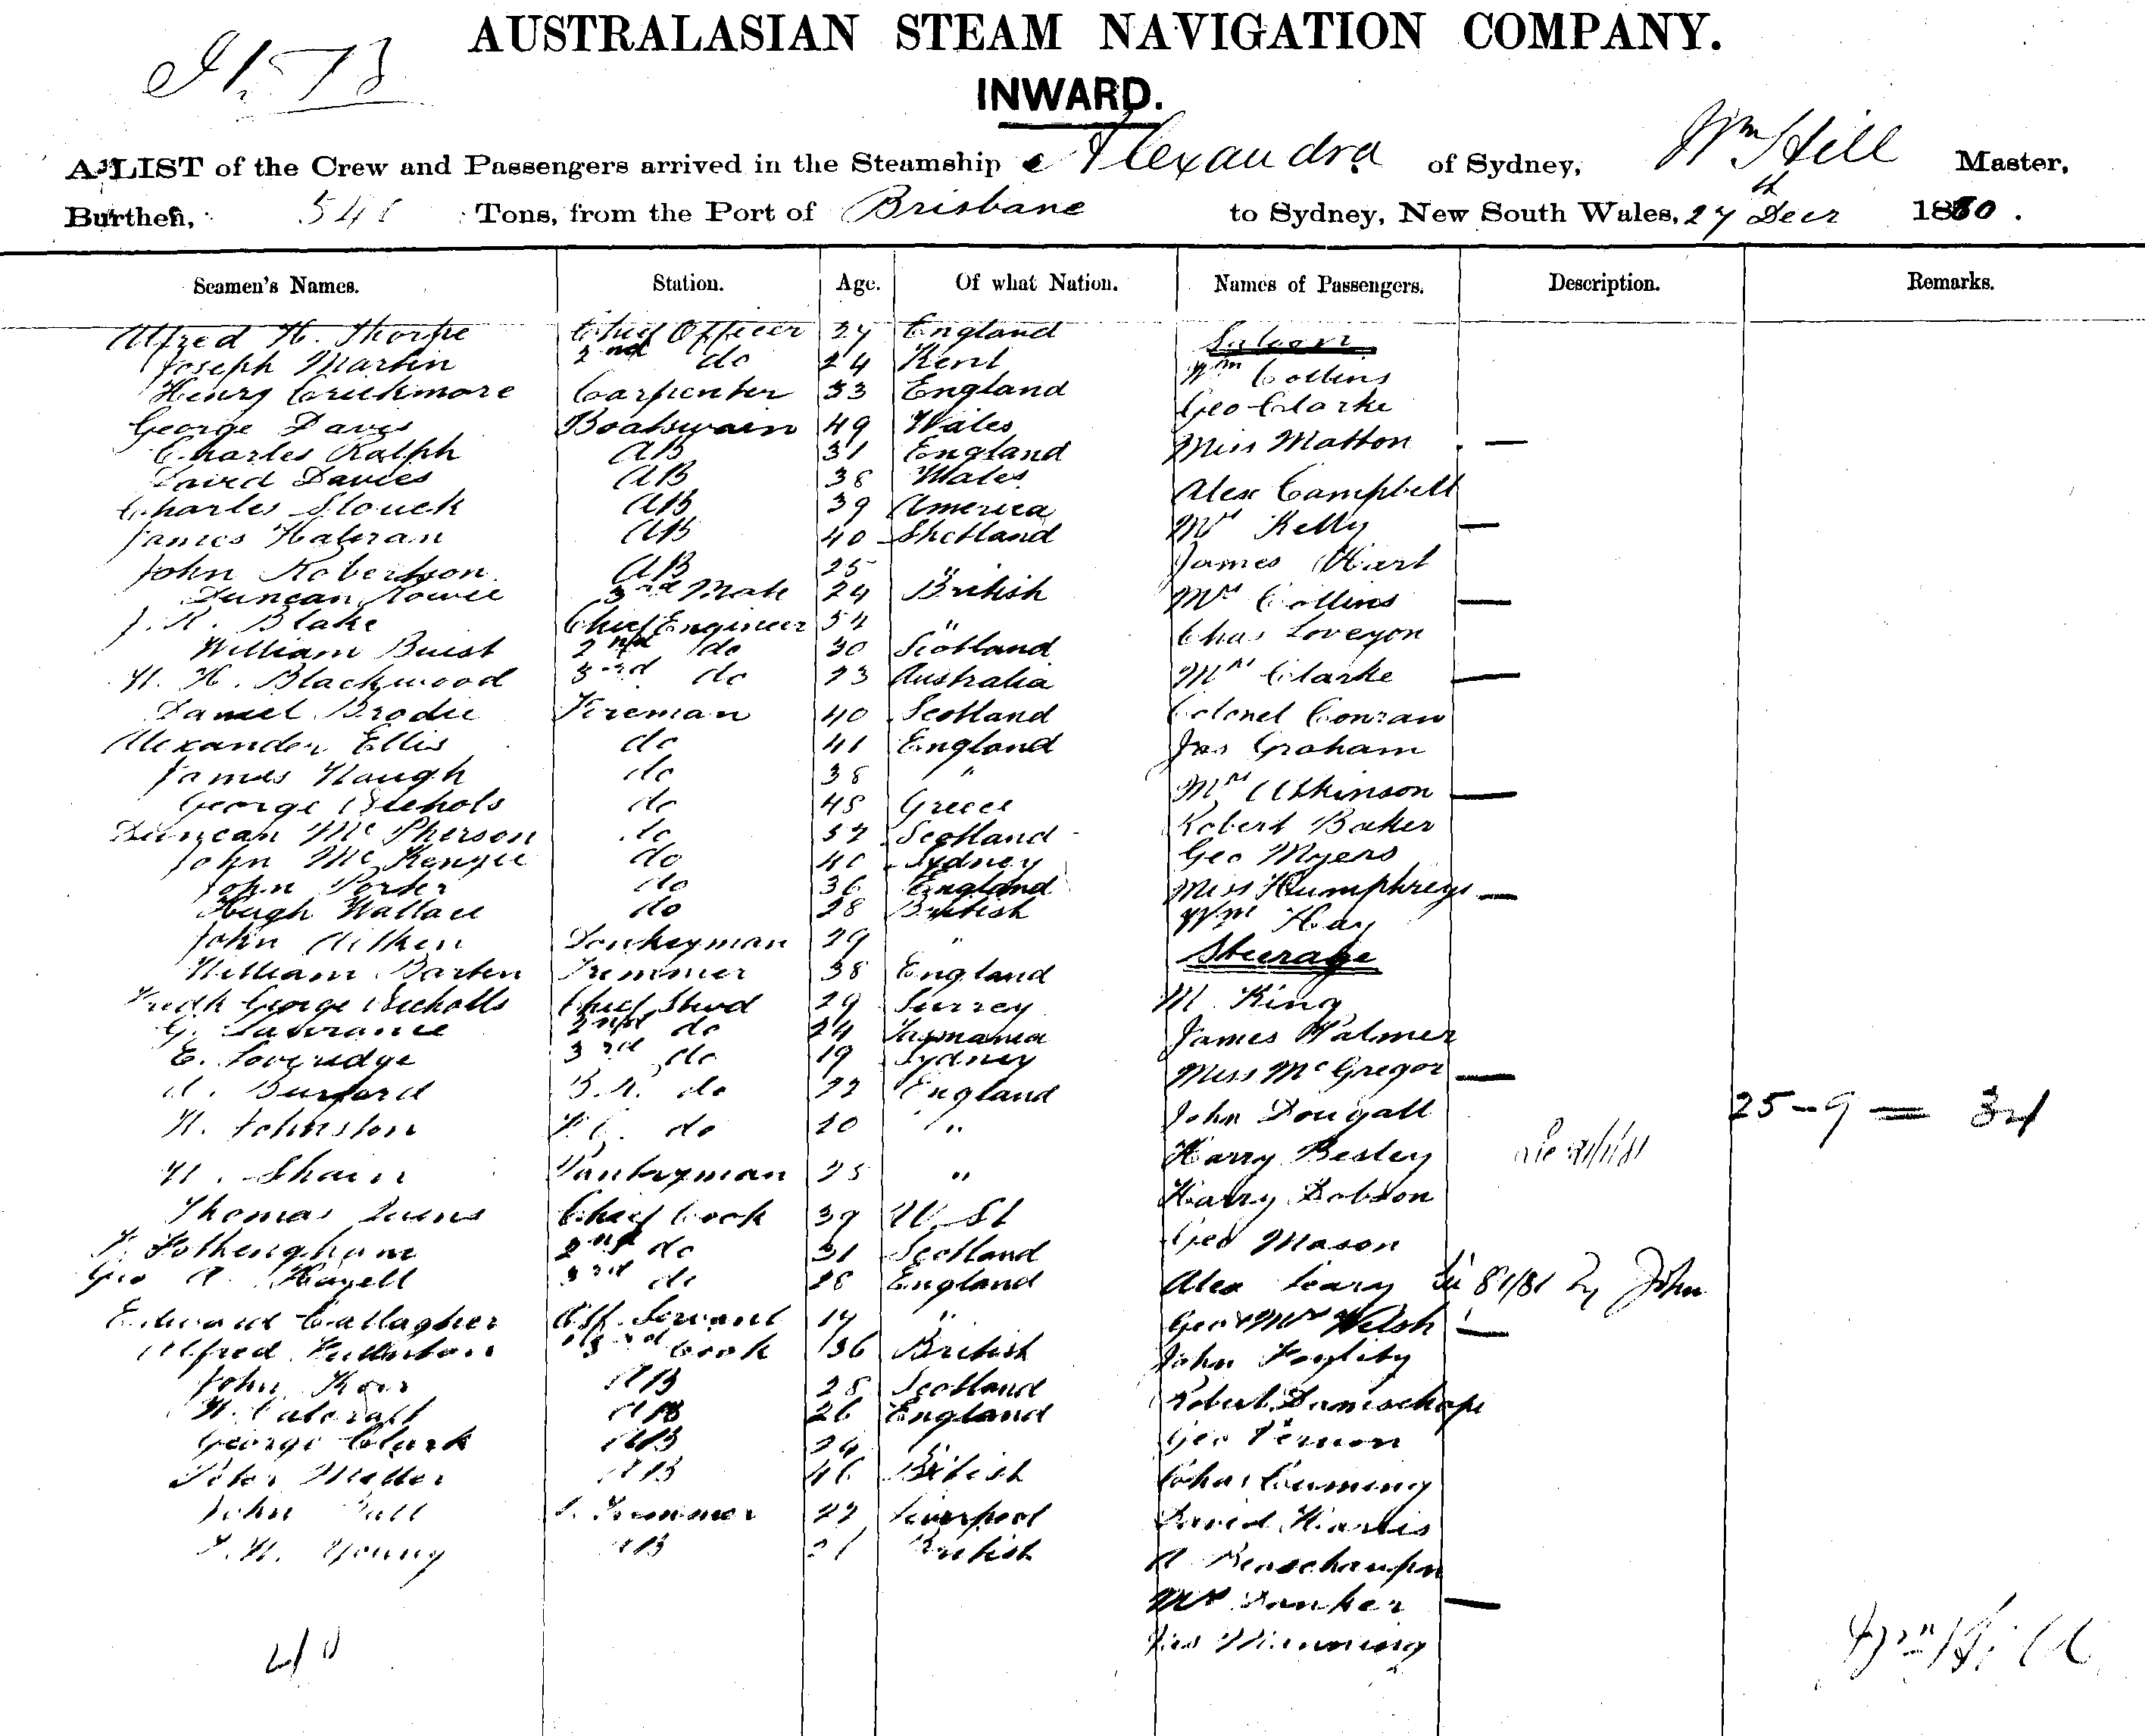 AUSTRALASIAN STEAM NAVIGATION COMPANY.
INWARD.
A LIST of the Crew and Passengers arrived in the Steamship Alexandra of Sydney, Wm Hill Master,
Burthen, Tons, from the Port of Brisbane to Sydney, New South Wales, 27th Decr 1880.
Seamen's Names. Station. Age. Of what Nation. Names of Passengers. Description. Remarks.
Alfred H. Thorpe Chief Officer 27 England Saloon
Joseph Martin 2nd do 24 Kent Wm Collins
Henry Crickmore Carpenter 33 England Geo Clarke
George Davis Boatswain 49 Wales Miss Matton —
Charles Ralph AB 31 England
David Davies AB 38 Wales Alex Campbell
Charles Slouck AB 39 America Mrs Kelly —
James Halcran AB 40 Shetland James Hart
John Robertson AB 25 "
Duncan 3rd Mate 29 British Mrs Collins —
J. R. Blake Chief Engineer 54 " Chas Loveyon
William Buist 2nd do 30 Scotland
H. H. Blackwood 3rd do 23 Australia Mrs Clarke —
Daniel Brodie Fireman 40 Scotland Colonel Conran
Alexander Ellis do 41 England Jas Graham
James Waugh do 38 " Mrs Atkinson —
George Nichols do 48 Greece Robert Baker
Duncan McPherson do 37 Scotland
John McKenzie do 40 Sydney Geo Myers
John Porter do 36 England Miss Humphreys —
Hugh Wallace do 28 British Wm Hay
John Aitken Donkeyman 29 " Steerage
William Barten Trimmer 38 England
Fredk George Nicholls Chief Stwd 29 Surrey M. King
G. Lawrance 2nd do 24 Tasmania James Palmer
E. Loveridge 3rd do 19 Sydney Miss McGregor —
Burford B.R. do 22 England John Dougall 25 - 9 = 34
H. Johnston F.C. do 20 " Harry Besley
Shain Pantryman 25 " Harry Dobson
Thomas Chief Cook 39 W. St Geo Mason
F. Fothengham 2nd do 31 Scotland
Geo A. Hayell 3rd do 28 England Alex Leary John
Edward Callagher Off. Servant 17 " Geo & Mrs Welsh —
Alfred Fullerton 3rd Cook 36 British John
John Kerr AB 28 Scotland Robert
W. Calcraft AB 26 England Geo Vernon
George Clark AB 24 "
Peter Moller AB 46 British Chas Cumming
John S. Trimmer 22 Liverpool David Harris
Young AB 21 British
Mrs Danker —
Jas Manning
40
Wm Hill